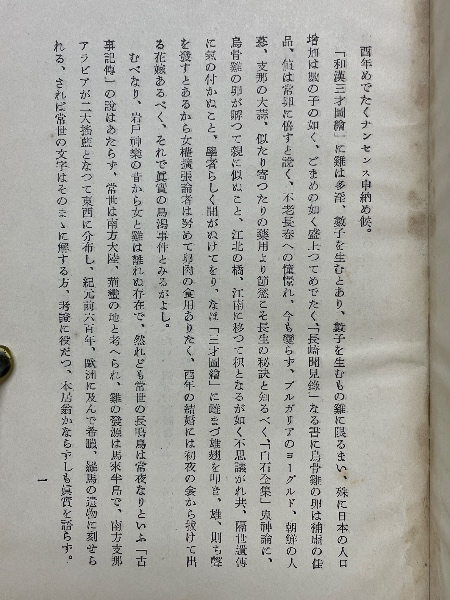 酉年めでたくナンセンス申納め候。
「和漢三才圖繪」に雞は多淫、數子を生むとあり、數子を生むもの雞に限るまい、殊に日本の人口
增加は數の子の如く、ごまめの如く盛上つてめでたく、「長崎聞見錄」なる書に烏骨雞の卵は補劑の佳
品、値は常卵に倍すと説く、不老長春への憧憬れ、今も變らず、ブルガリアのヨーグルド、朝鮮の人
蔘、支那の大蒜、似たり寄つたりの藥用より節慾こそ長生の秘訣と知るべく、「白石全集」鬼神論に、
烏骨雞の卵が孵つて親に似ぬこと、江北の橘、江南に移つて枳となるが如く不思議がれ共、隔世遺傳
に氣の付かぬこと、學者らしく間がぬけてをり、なほ「三才圖繪」に雌まづ雄翅を叩き、雄、則ち聲
を發すとあるから女權擴張論者は努めて卵肉の食用ありたく、酉年の結婚には初夜の衾から拔けて出
る花嫁あるべく、それで眞實の烏滸事件とみるがよし。
むべなり、岩戸神樂の昔から女と雞は離れぬ存在で、然れども常世の長鳴鳥は常夜なりといふ「古
事記傳」の説はあたらず、常世は南方大陸、荊蠻の地と考へられ、雞の發源は馬來半島で、南方支那
アラビアが二大搖籃となつて東西に分布し、紀元前六百年、歐洲に及んで希臘、羅馬の遺物に刻せら
れる、されば常世の文字はそのまゝに解する方、考證に役だつ、本居翁かならずしも眞實を語らず。
一